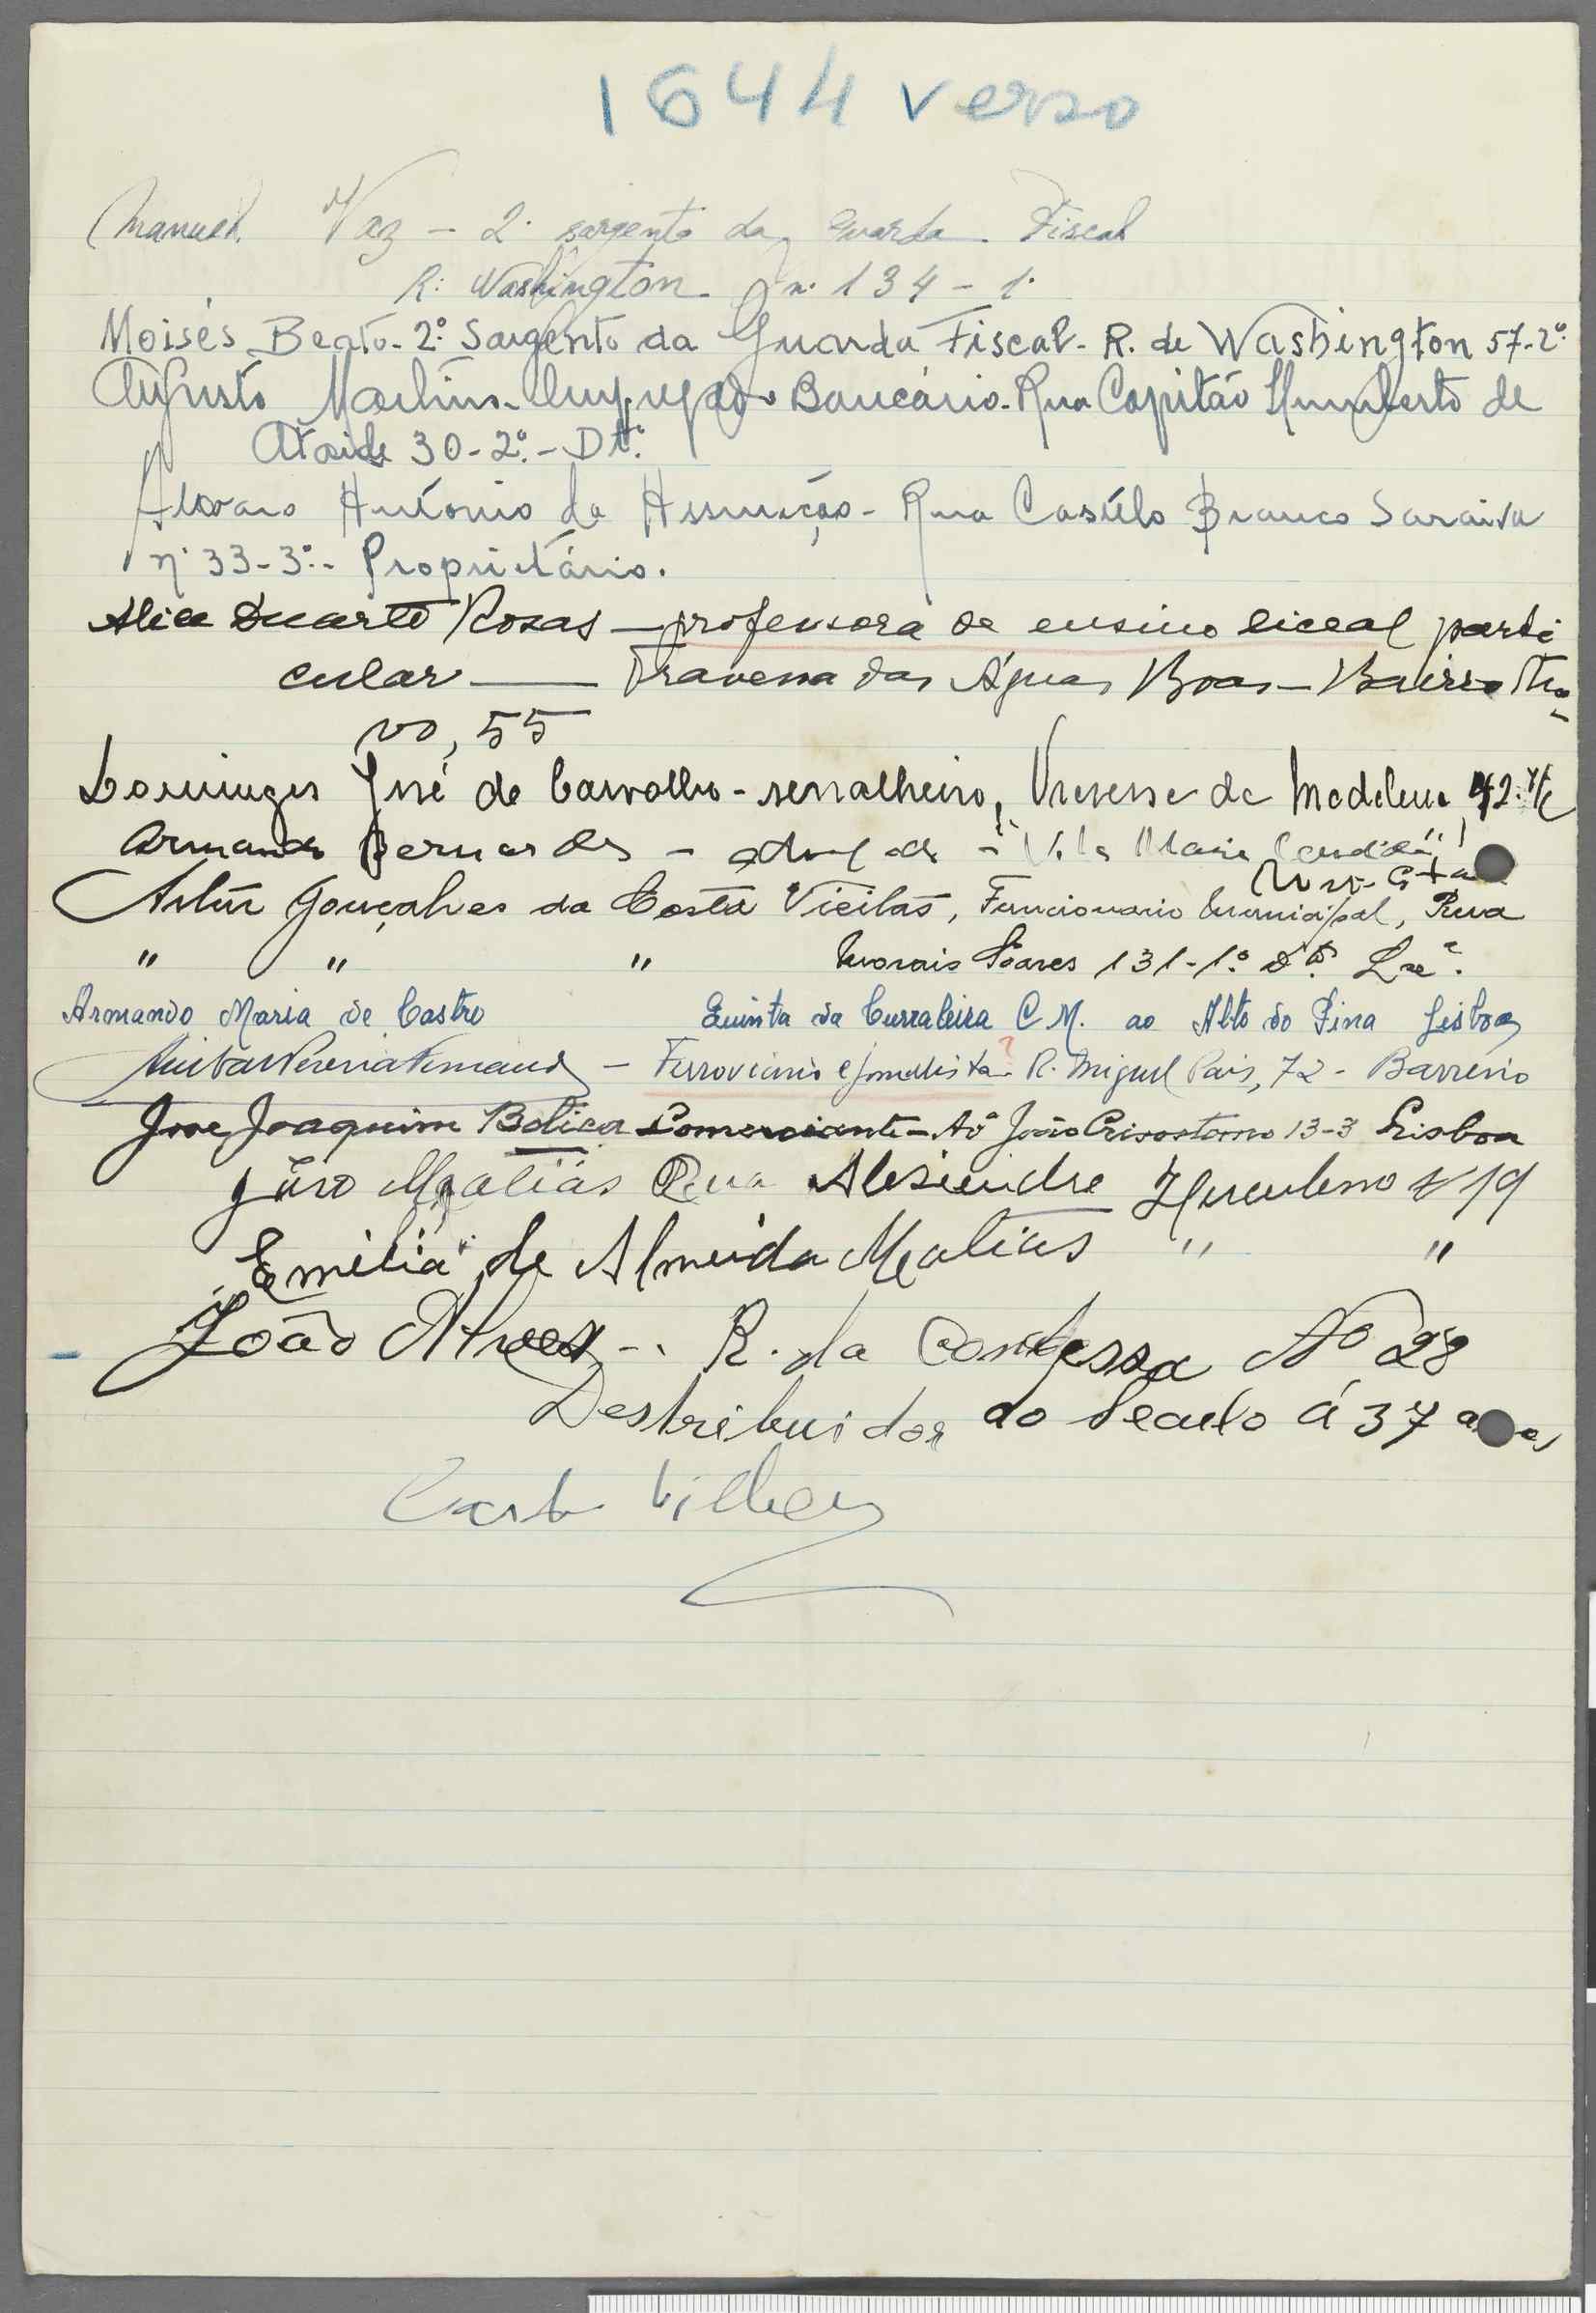 1644 verso
Manuel Vaz - 2º sargento da Guarda Fiscal
R: Washington nº 134 - 1º
Moisés Beato - 2º Sargento da Guarda Fiscal - R. de Washington 57-2º
Augusto Martins - Empregado Bancário - Rua Capitão Humberto de
Ataide 30-2º - Dtº
Alvaro António da Assunção - Rua Castelo Branco Saraiva
nº 33-3º - Proprietário.
Alice Duarte Rosas - professora de ensino liceal parti
cular — Travessa das Águas Boas - Bairro No-
vo, 55
Domingos José de Carvalho - serralheiro, Travessa da Madalena, 42. r/c
Armando Bernardes - - "Vila Maria Candida"
Artur Gonçalves da Costa Vieitas, Funcionario Municipal, Rua
" " " Morais Soares 131-1º Dtº Lxª.
Armando Maria de Castro Quinta da Curraleira C. M. ao Alto do Pina Lisboa
Pereira Fernandes - Ferroviário e jornalista ? R. Miguel Pais, 72 - Barreiro
Jose Joaquim Botica Comerciante - Aº João Crisostomo 13-3 Lisboa
João Matias Rua Alexendre Herculano Nº 19
Emilia de Almeida Matias " "
João Alves - R. da Condessa Nº 28
Destribuidor do Seculo á 37 anos